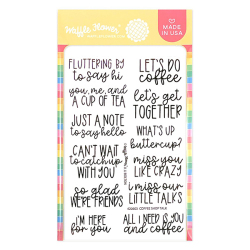 Waffle Flower
MADE IN USA
FLUTTERING BY
to say hi
you, me, and
A CUP OF TEA
JUST A NOTE
to say hello
CAN'T WAIT
to catch up
WITH YOU
so glad
WE'RE FRIENDS
I'M HERE
for you
LET'S DO
coffee
let's get
TOGETHER
WHAT'S UP
buttercup?
miss you
LIKE CRAZY
I miss our
LITTLE TALKS
ALL I NEED IS YOU
and coffee
COFFEE SHOP TALK